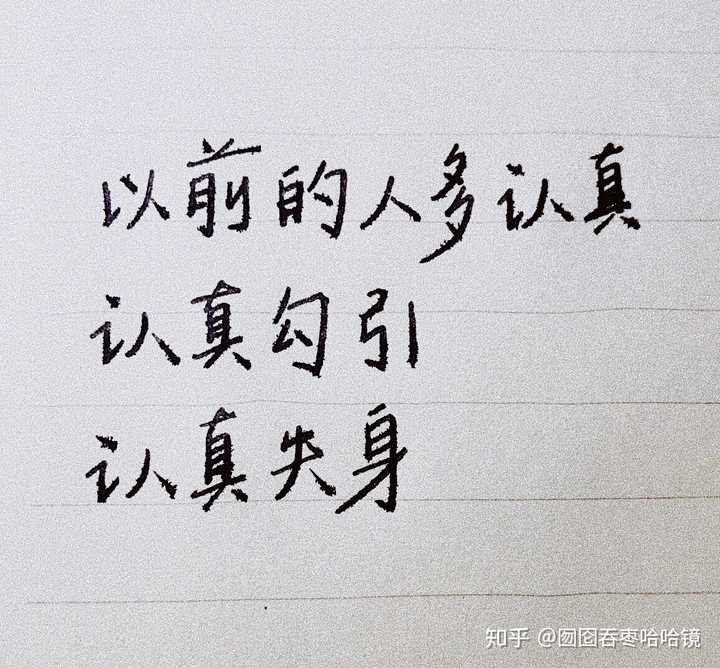 以前的人多认真
认真勾引
认真失身
知乎 @囫囵吞枣哈哈镜